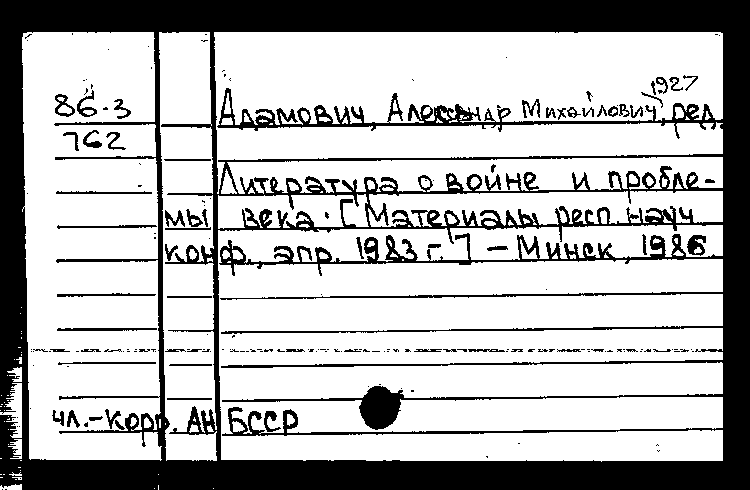 1927
86-3 Адамович, Александр Михайлович, ред.
762
Литература о войне и пробле-
мы века: [Материалы респ. науч
конф., апр. 1983 г.] – Минск, 1986.
чл.-корр. АН БССР